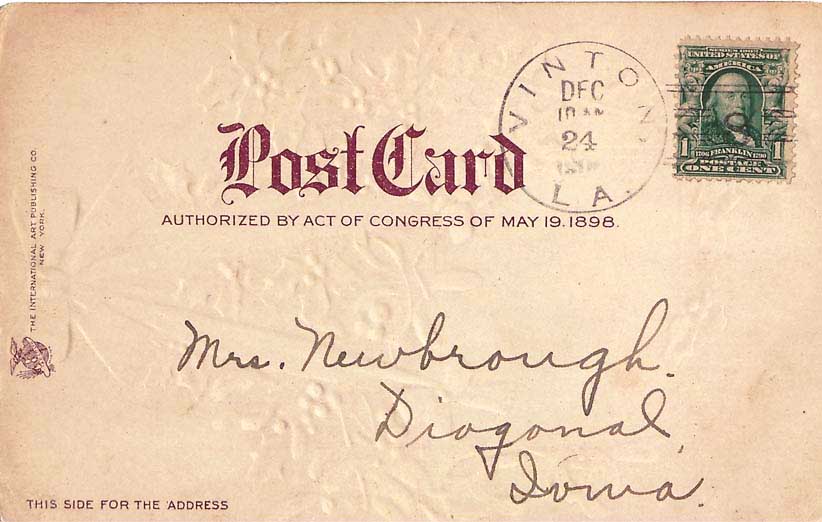 SERIES 1902
UNITED STATES OF
AMERICA
1 1706 FRANKLIN 1790 1
POSTAGE
ONE CENT
VINTON,
DEC
10 AM
24
LA.
Post Card
AUTHORIZED BY ACT OF CONGRESS OF MAY 19, 1898.
THE INTERNATIONAL ART PUBLISHING CO.
NEW YORK.
Mrs. Newbrough.
Diogonal,
Iowa.
THIS SIDE FOR THE ADDRESS